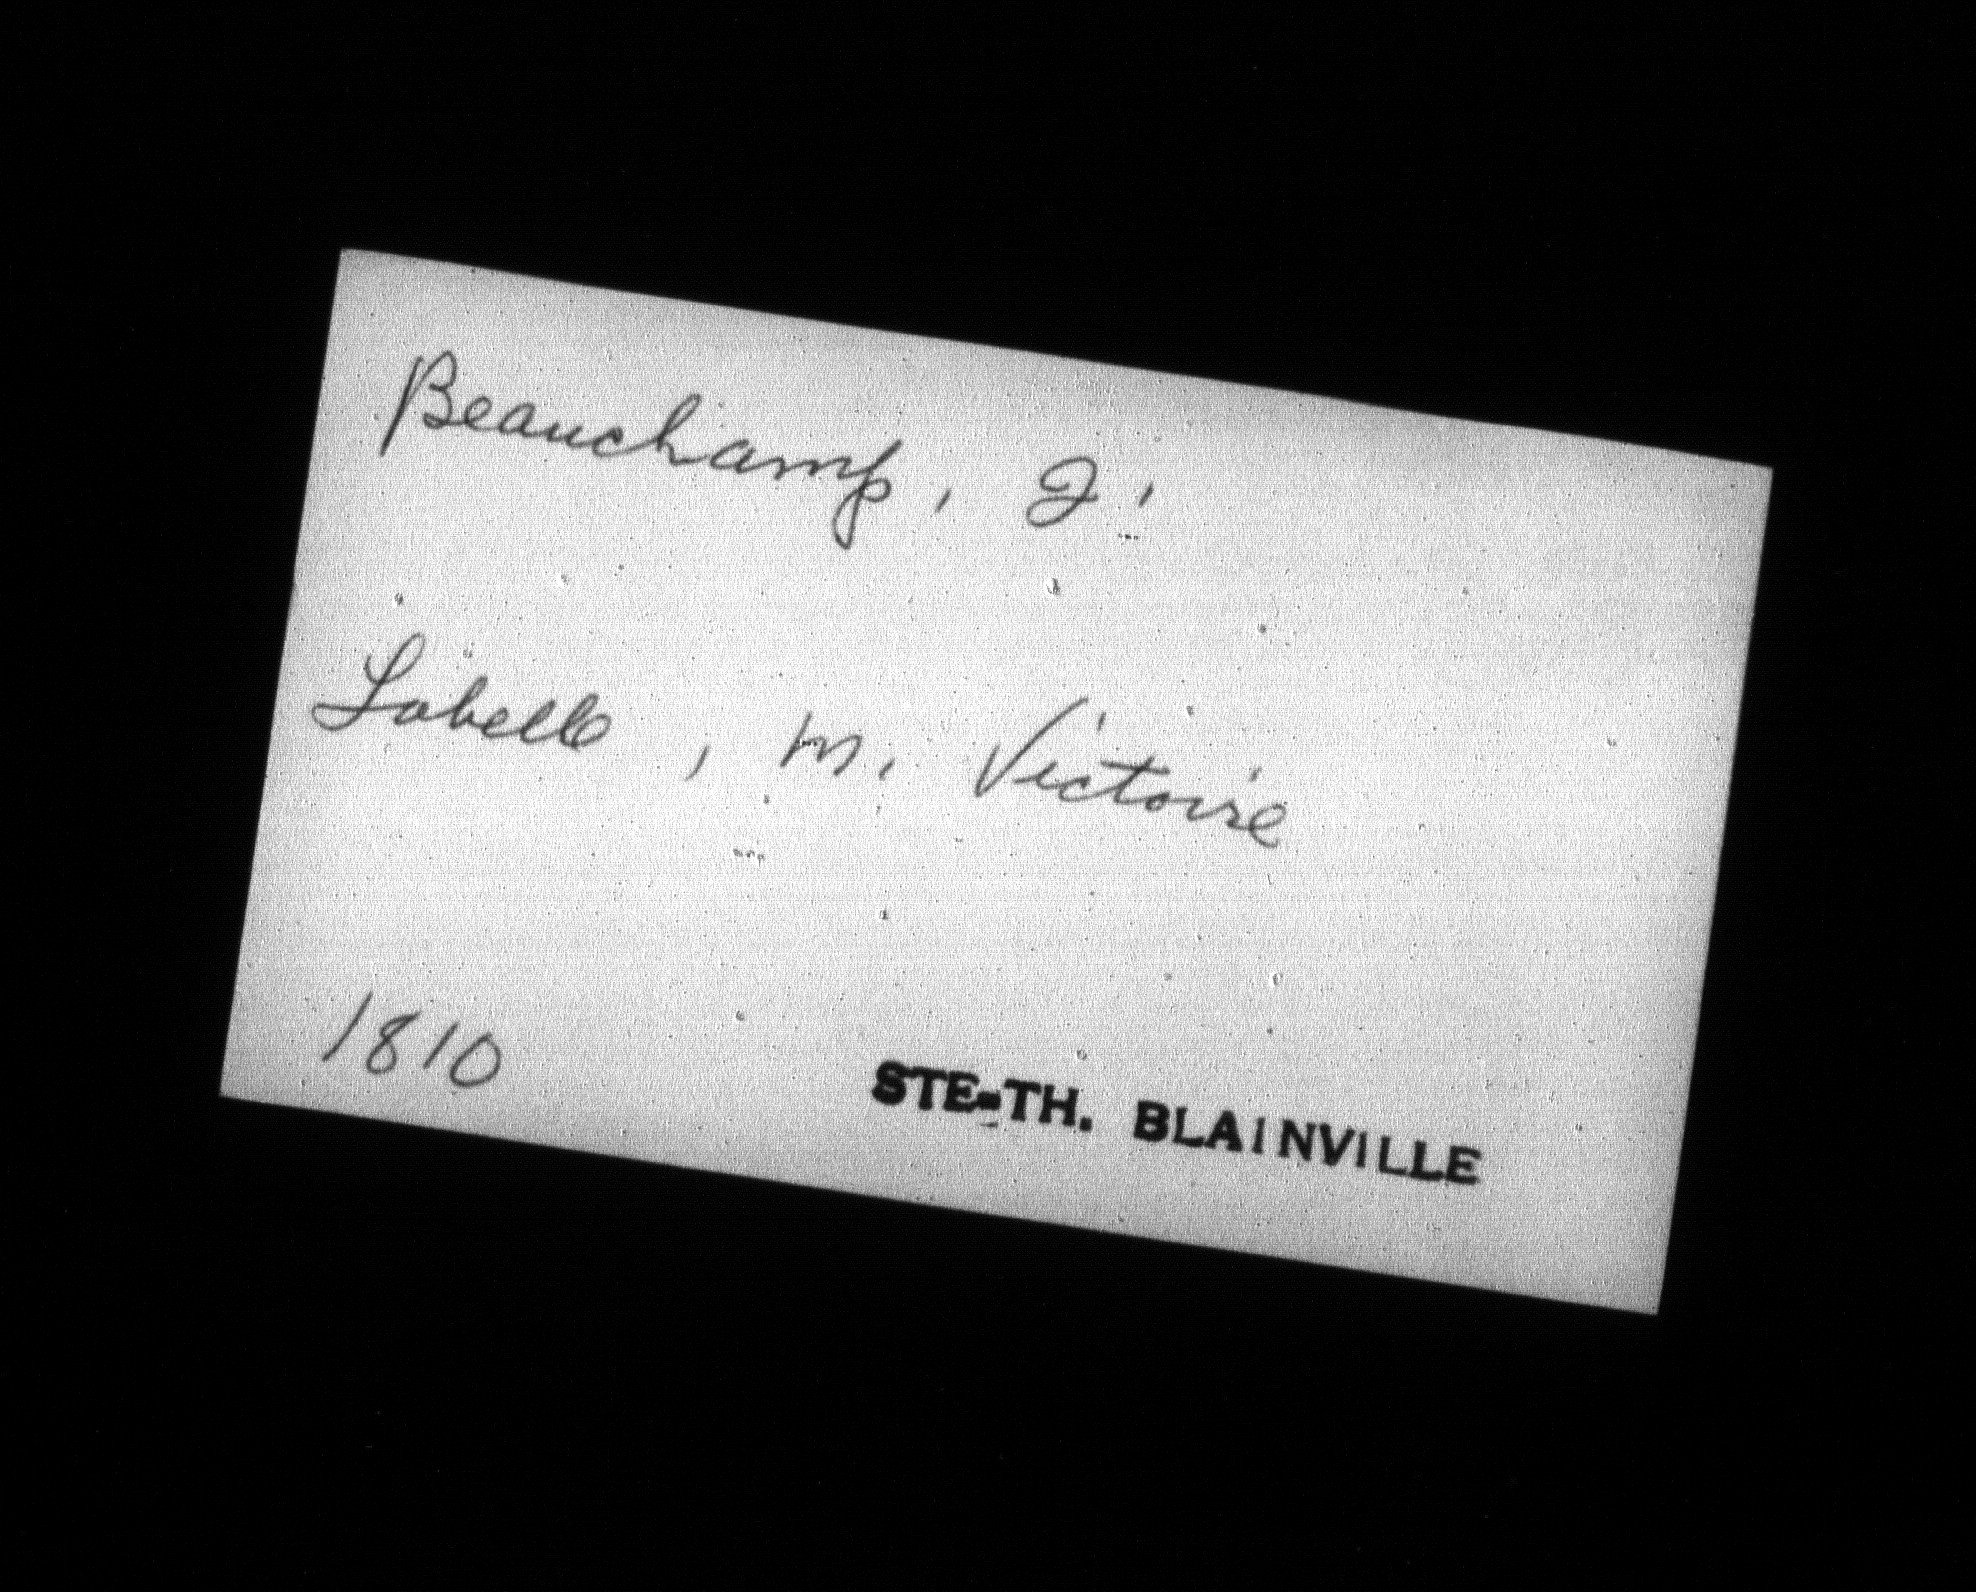 Beauchamp, J.
Labelle, M. Victoire
1810 STE-TH. BLAINVILLE